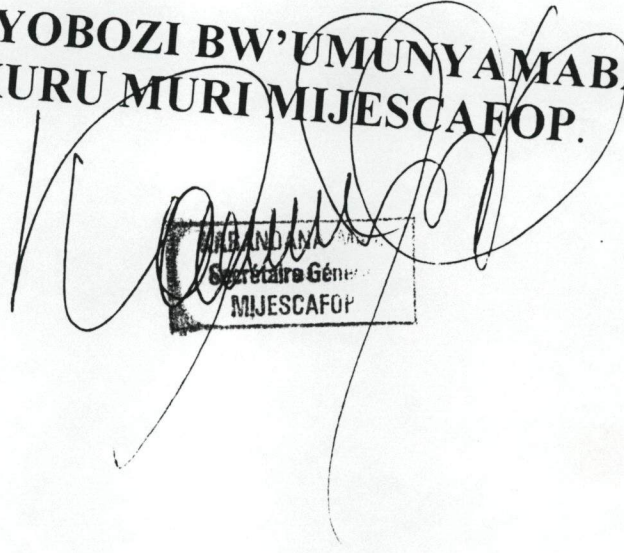 YOBOZI BW'UMUNYAMABA
KURU MURI MIJESCAFOP.
KABANDANA
Secrétaire Géné
MIJESCAFOP